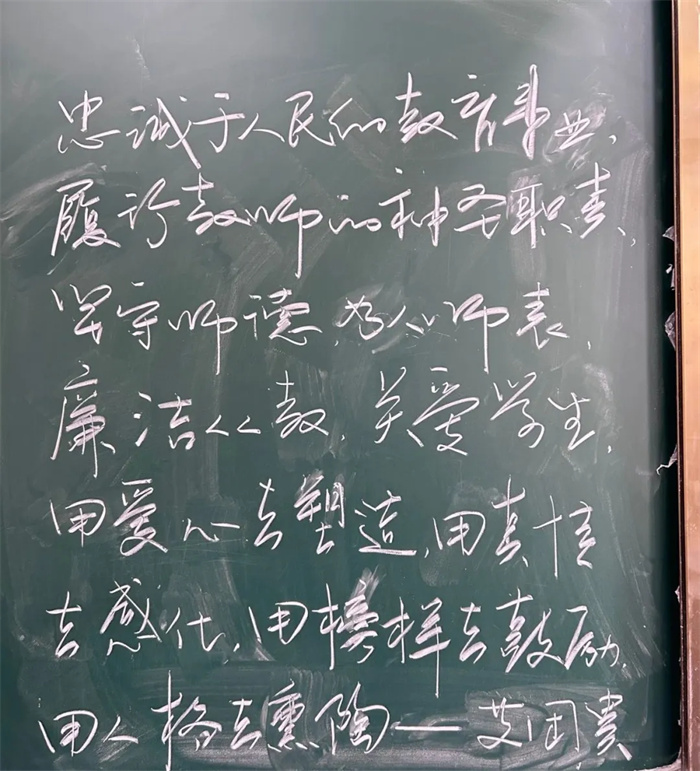 忠诚于人民的教育事业,
履行教师的神圣职责,
坚守师德,为人师表,
廉洁从教,关爱学生,
用爱心去塑造,用真情
去感化,用榜样去鼓励,
用人格去熏陶——艾国贵